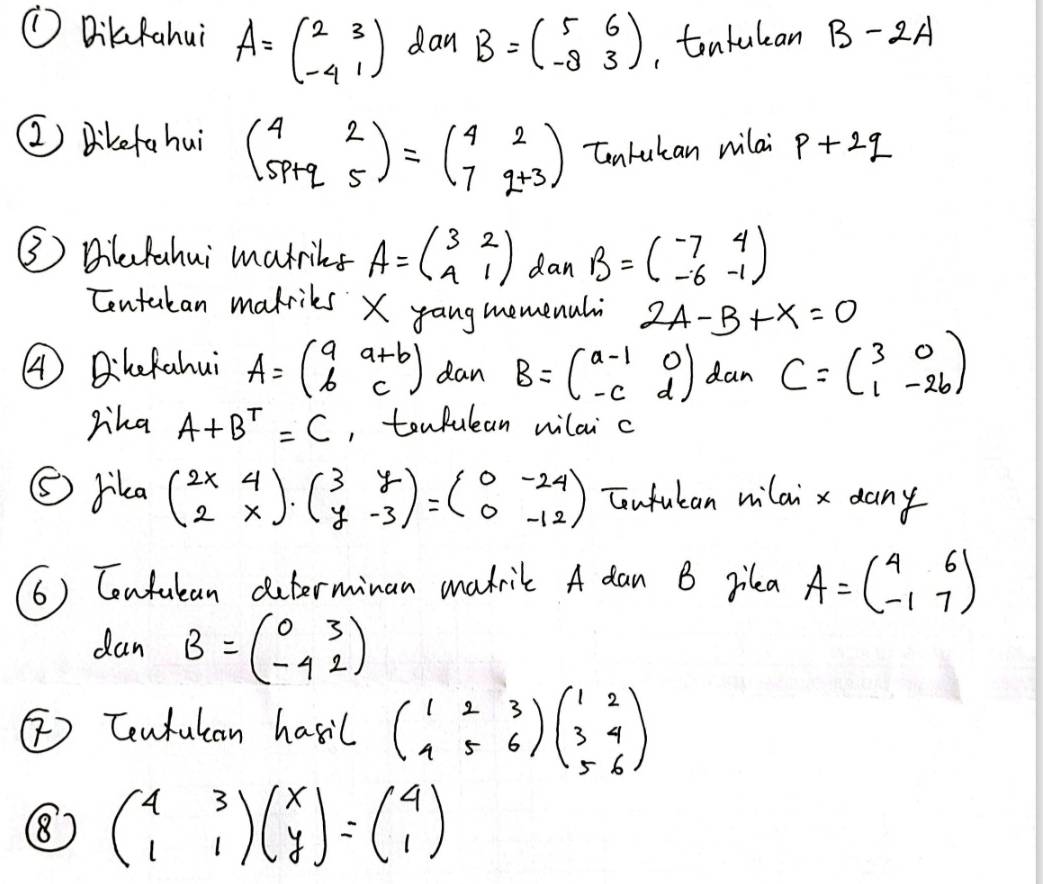 ① Diketahui A = (2 3 / -4 1) dan B = (5 6 / -8 3), tentukan B - 2A
② Diketahui (4 2 / 5p+q 5) = (4 2 / 7 q+3) Tentukan nilai p + 2q
③ Diketahui matriks A = (3 2 / 4 1) dan B = (-7 4 / -6 -1)
Tentukan matriks X yang memenuhi 2A - B + X = 0
④ Diketahui A = (a a+b / b c) dan B = (a-1 0 / -c d) dan C = (3 0 / 1 -2b)
Jika A + Bᵀ = C, tentukan nilai c
⑤ Jika (2x 4 / 2 x) . (3 y / y -3) = (0 -24 / 0 -12) Tentukan nilai x dan y
⑥ Tentukan determinan matrik A dan B jika A = (4 6 / -1 7)
dan B = (0 3 / -4 2)
⑦ Tentukan hasil (1 2 3 / 4 5 6) (1 2 / 3 4 / 5 6)
⑧ (4 3 / 1 1) (x / y) = (4 / 1)